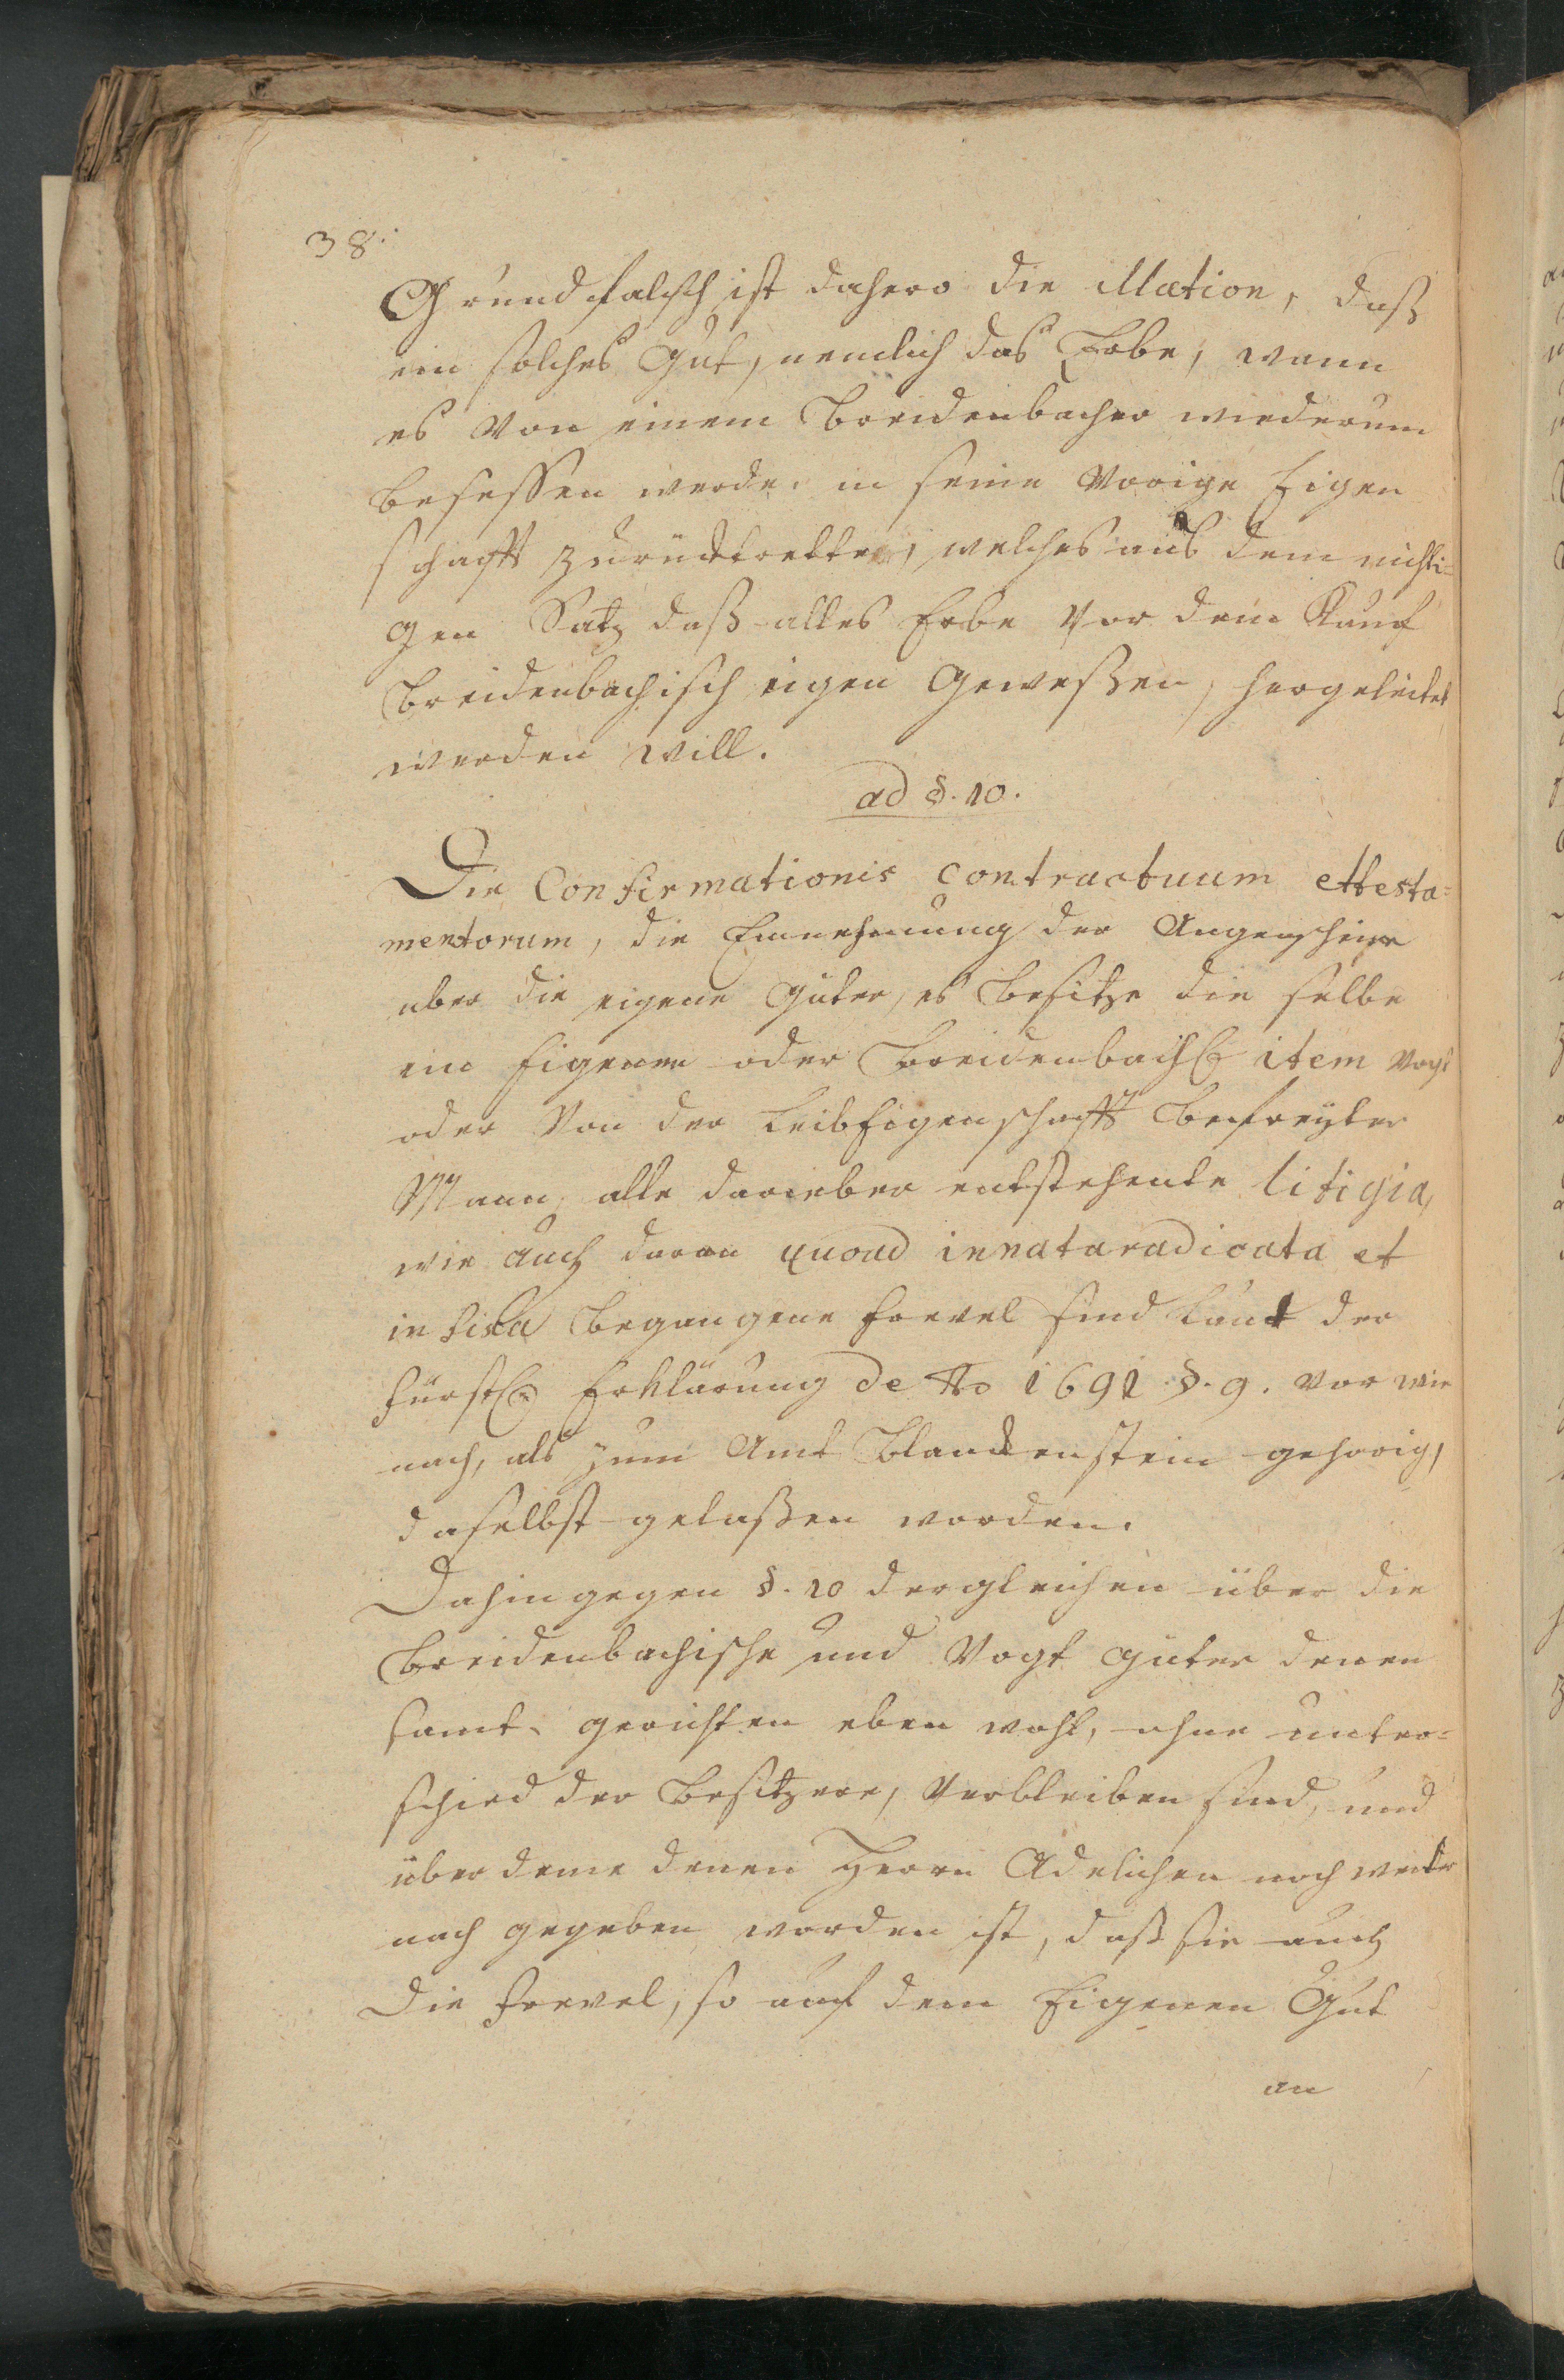 38.
Grund falsch ist dahero die illation, daß
ein solches Gut, nemlich das Erbe, wann
es von einem Breidenbacher wiederum
besessen werde, in seine vorige Eigen
schafft zurücktrette, welches aus dem nichti=
gen Satz daß alles Erbe vor dem Kauf
Breidenbachisch eigen Gewesßen, hergeleitet
werden will.
ad §. 10.
Die Confirmationis contractuum ettesta=
mentorum, die Einnehmung der Augenscheine
uber die eigene Güter, es besitze die selbe
ein Eigener oder Breidenbach. item Vogt
oder von der Leibeigenschafft befreyter
Mann, alle darueber entstehente litigia,
wie auch daran quoad innata radicata et
infixa begangene frevel sind laut der
fürstl. Erklärung de Ao 1691 §. 9. vor wie
nach, als zum Amt Blanckenstein gehorig,
daselbst gelaßen worden.
Dahingegen §. 10 dergleichen über die
Breidenbachische und Vogt güter denen
samt gerichten eben wohl, ohne unter=
schied der Besitzere, verbleiben sind, und
über deme denen Herrn Adelichen noch weiter
nach gegeben worden ist, daß sie auch
die frevel, so auf dem Eigenen Gut
an